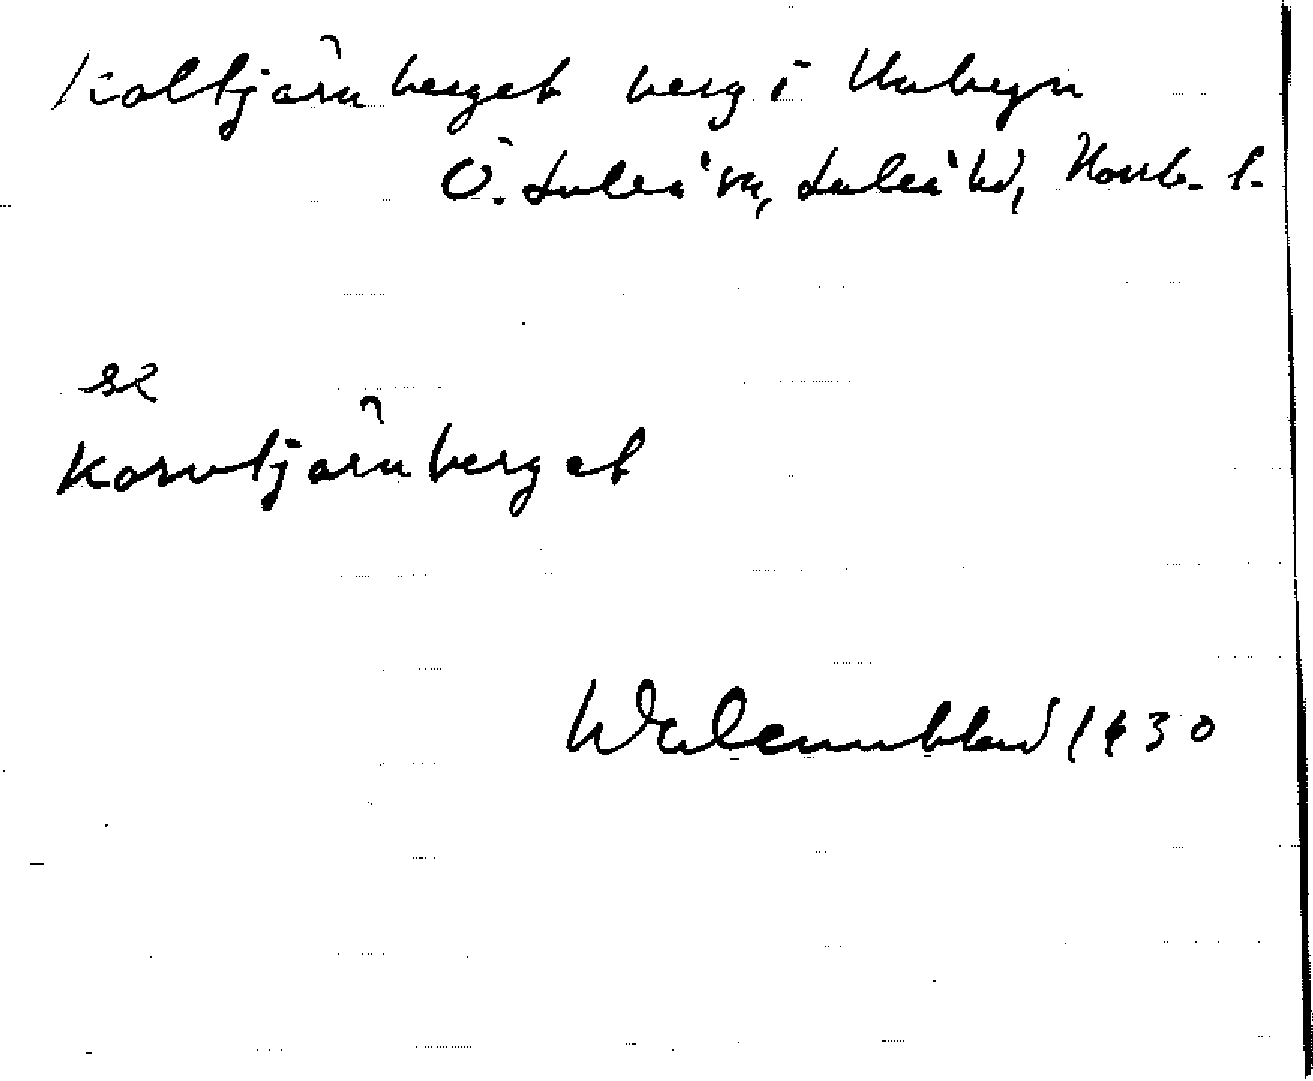 Koltjärnberget berg i Unbyn
Ö. Luleå sn, Luleå hd, Norrb. l.
se
Korvtjärnberget
Wulennblad 1930